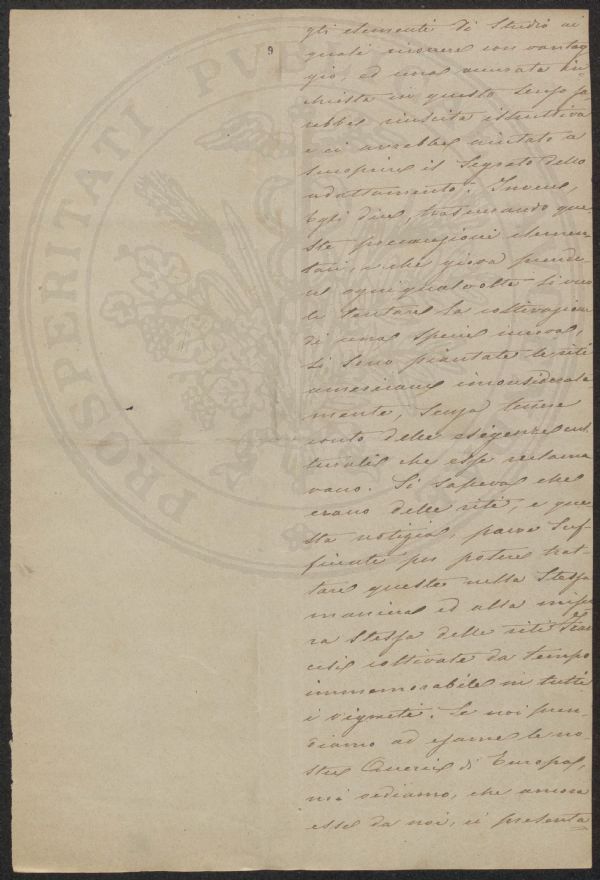 9
gli elementi di studio ai
quali ricorrere con vantag
gio, ed una accurata in-
chiesta in questo senso sa
rebbe riuscita istruttiva
e ci avrebbe aiutato a
scoprire il segreto dello
adattamento. Invece,
Egli dice, trascurando que-
ste precauzioni elemen-
tari, e che giova prende
re ogni qualvolta si vuo
le tentare la coltivazione
di una specie nuova,
si sono piantate le viti
americane inconsiderata
mente, senza tenere
conto delle esigenze cul
turali che esse reclama
vano. Si sapeva che
erano delle viti, e que
sta notizia, parve suf-
ficiente per potere trat
tare queste nella stessa
maniera ed alla misu
ra stessa delle viti fran
cesi coltivate da tempo
immemorabile in tutti
i vigneti. Se noi pren-
diamo ad esame le no-
stre Querci di Europa,
noi vediamo, che ancora
esse da noi, ci presenta
PROSPERITATI PVB